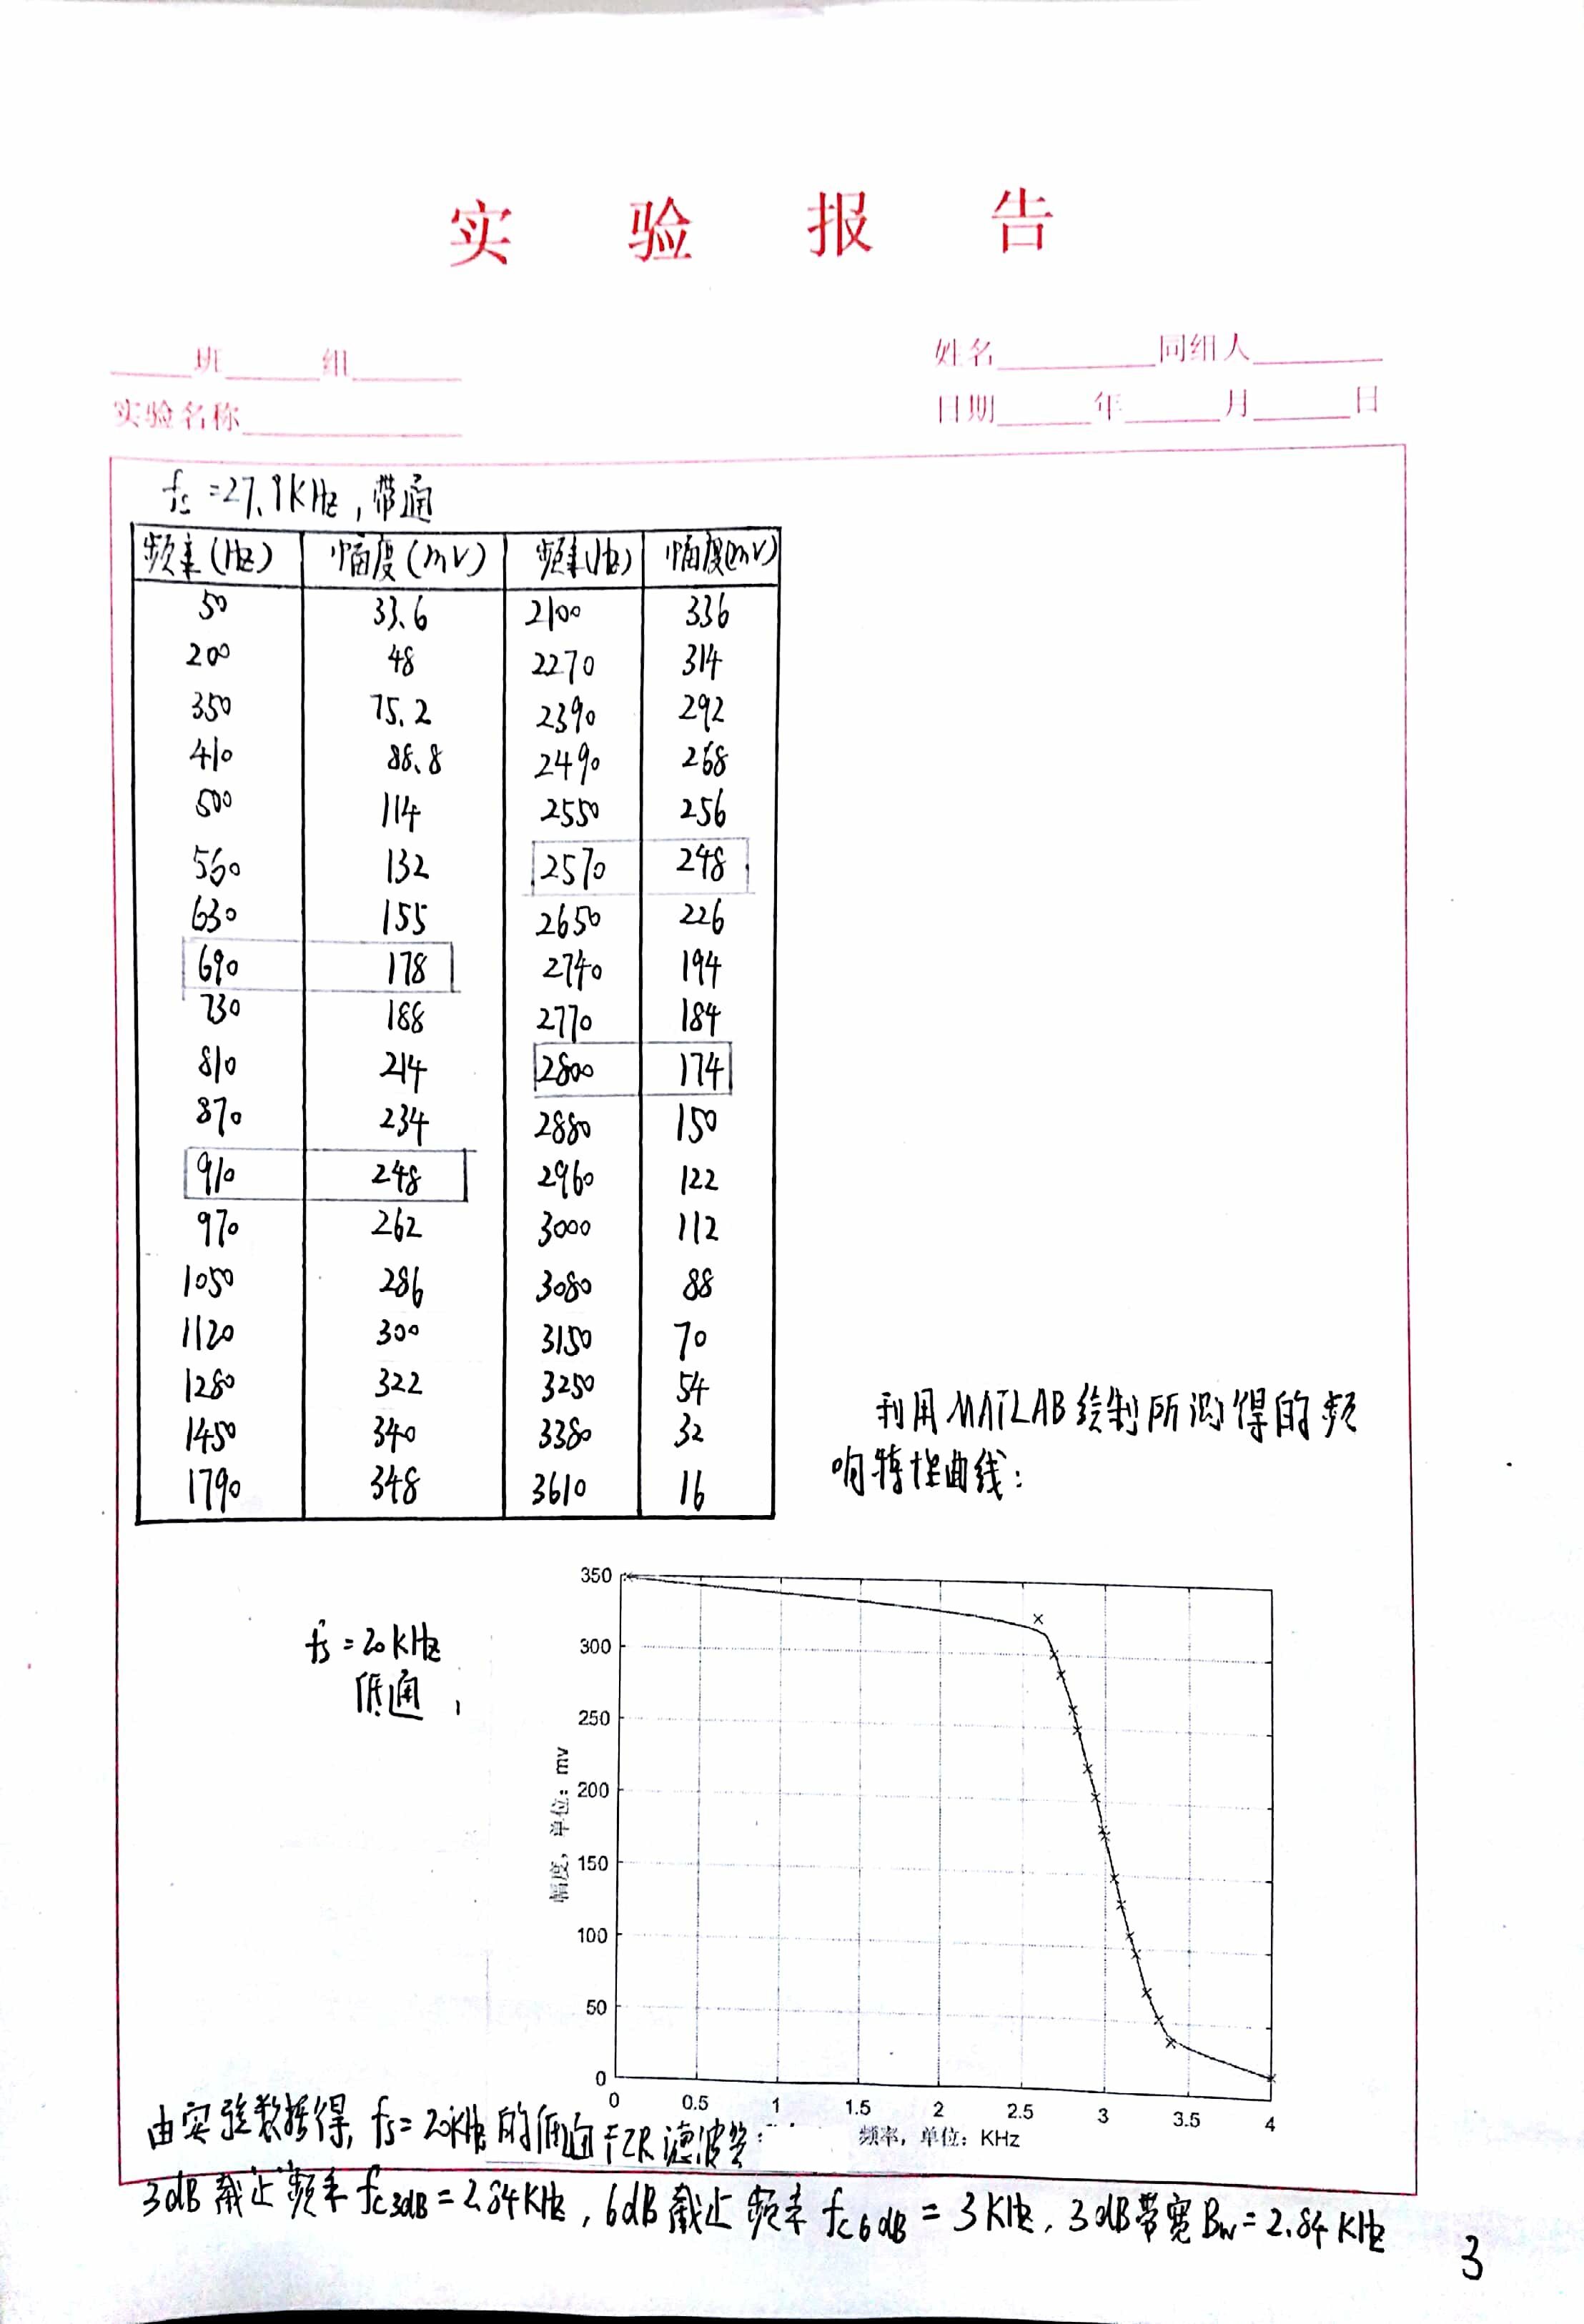 实 验 报 告
班 组 姓名 同组人
实验名称 日期 年 月 日
fs=27.9KHz,带通
频率(Hz) 幅度(mV) 频率(Hz) 幅度(mV)
50 33.6 2100 336
200 48 2270 314
350 75.2 2390 292
410 88.8 2490 268
500 114 2550 256
560 132 2570 248
630 155 2650 226
690 178 2740 194
730 188 2770 184
810 214 2800 174
870 234 2880 150
910 248 2960 122
970 262 3000 112
1050 286 3080 88
1120 300 3150 70
1280 322 3250 54
1450 340 3380 32
1790 348 3610 16
利用MATLAB绘制所测得的频
响特性曲线:
fs=20KHz
低通,
350
300
250
200
150
100
50
0
幅度,单位:mv
0 0.5 1 1.5 2 2.5 3 3.5 4
频率,单位:KHz
由实验数据得,fs=20KHz的低通FIR滤波器:
3dB截止频率fc3dB=2.84KHz,6dB截止频率fc6dB=3KHz,3dB带宽Bw=2.84KHz
3